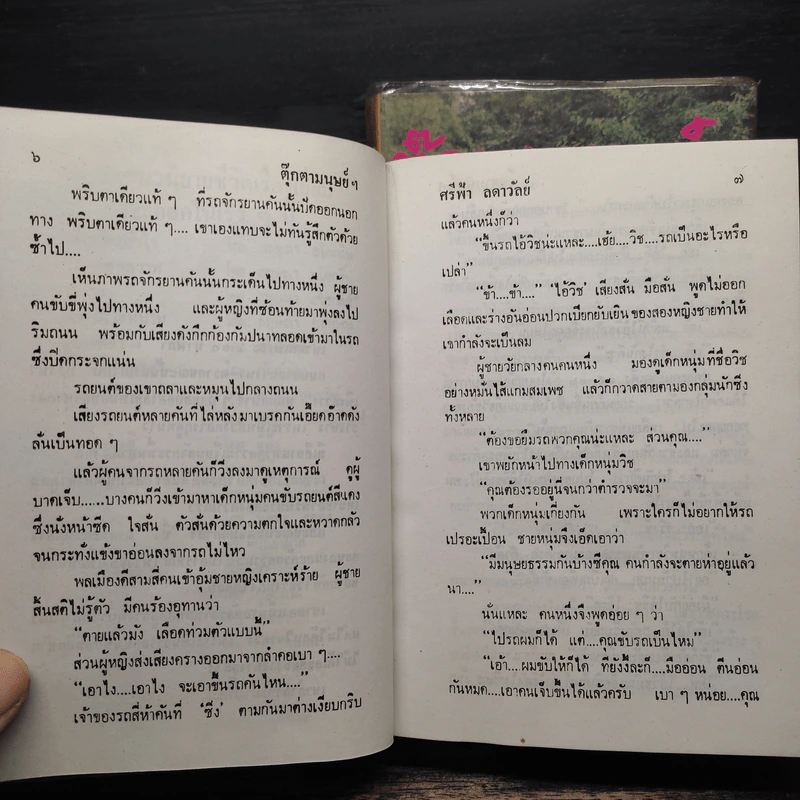 ๖
ตุ๊กตามนุษย์ ๆ
พริบตาเดียวแท้ ๆ ที่รถจักรยานคันนั้นปัดออกนอก
ทาง พริบตาเดียวแท้ ๆ.... เขาเองแทบจะไม่ทันรู้สึกตัวด้วย
ซ้ำไป....
เห็นภาพรถจักรยานคันนั้นกระเด็นไปทางหนึ่ง ผู้ชาย
คนขับขี่พุ่งไปทางหนึ่ง และผู้หญิงที่ซ้อนท้ายมาพุ่งลงไป
ริมถนน พร้อมกับเสียงดังกึกก้องกัมปนาทลอดเข้ามาในรถ
ซึ่งปิดกระจกแน่น
รถยนต์ของเขาถลาและหมุนไปกลางถนน
เสียงรถยนต์หลายคันที่ไล่หลังมาเบรคกันเอี๊ยดอ๊าดดัง
ลั่นเป็นทอด ๆ
แล้วผู้คนจากรถหลายคันก็วิ่งลงมาดูเหตุการณ์ ดูผู้
บาดเจ็บ......บางคนก็วิ่งเข้ามาหาเด็กหนุ่มคนขับรถยนต์สีแดง
ซึ่งนั่งหน้าซีด ใจสั่น ตัวสั่นด้วยความตกใจและหวาดกลัว
จนกระทั่งแข้งขาอ่อนลงจากรถไม่ไหว
พลเมืองดีสามสี่คนเข้าอุ้มชายหญิงเคราะห์ร้าย ผู้ชาย
สิ้นสติไม่รู้ตัว มีคนร้องอุทานว่า
“ตายแล้วมัง เลือดท่วมตัวแบบนี้”
ส่วนผู้หญิงส่งเสียงครางออกมาจากลำคอเบา ๆ....
“เอาไง....เอาไง จะเอาขึ้นรถคันไหน....”
เจ้าของรถสี่ห้าคันที่ ‘ซิ่ง’ ตามกันมาต่างเงียบกริบ
ศรีฟ้า ลดาวัลย์
๗
แล้วคนหนึ่งก็ว่า
“ขึ้นรถไอ้วิชน่ะแหละ....เฮ้ย....วิช....รถเป็นอะไรหรือ
เปล่า”
“ข้า....ข้า....” ‘ไอ้วิช’ เสียงสั่น มือสั่น พูดไม่ออก
เลือดและร่างอันอ่อนปวกเปียกยับเยิน ของสองหญิงชายทำให้
เขากำลังจะเป็นลม
ผู้ชายวัยกลางคนคนหนึ่ง มองดูเด็กหนุ่มที่ชื่อวิช
อย่างหมั่นไส้แกมสมเพช แล้วก็กวาดสายตามองกลุ่มนักซิ่ง
ทั้งหลาย
“ต้องขอยืมรถพวกคุณน่ะแหละ ส่วนคุณ....”
เขาพยักหน้าไปทางเด็กหนุ่มวิช
“คุณต้องรออยู่นี่จนกว่าตำรวจจะมา”
พวกเด็กหนุ่มเกี่ยงกัน เพราะใครก็ไม่อยากให้รถ
เปรอะเปื้อน ชายหนุ่มจึงเอ็ดเอาว่า
“มีมนุษยธรรมกันบ้างซีคุณ คนกำลังจะตายห่าอยู่แล้ว
นา....”
นั่นแหละ คนหนึ่งจึงพูดอ่อย ๆ ว่า
“ไปรถผมก็ได้ แต่....คุณขับรถเป็นไหม”
“เอ้า....ผมขับให้ก็ได้ ทียังงี้ละก็....มืออ่อน ตีนอ่อน
กันหมด....เอาคนเจ็บขึ้นได้แล้วครับ เบา ๆ หน่อย....คุณ